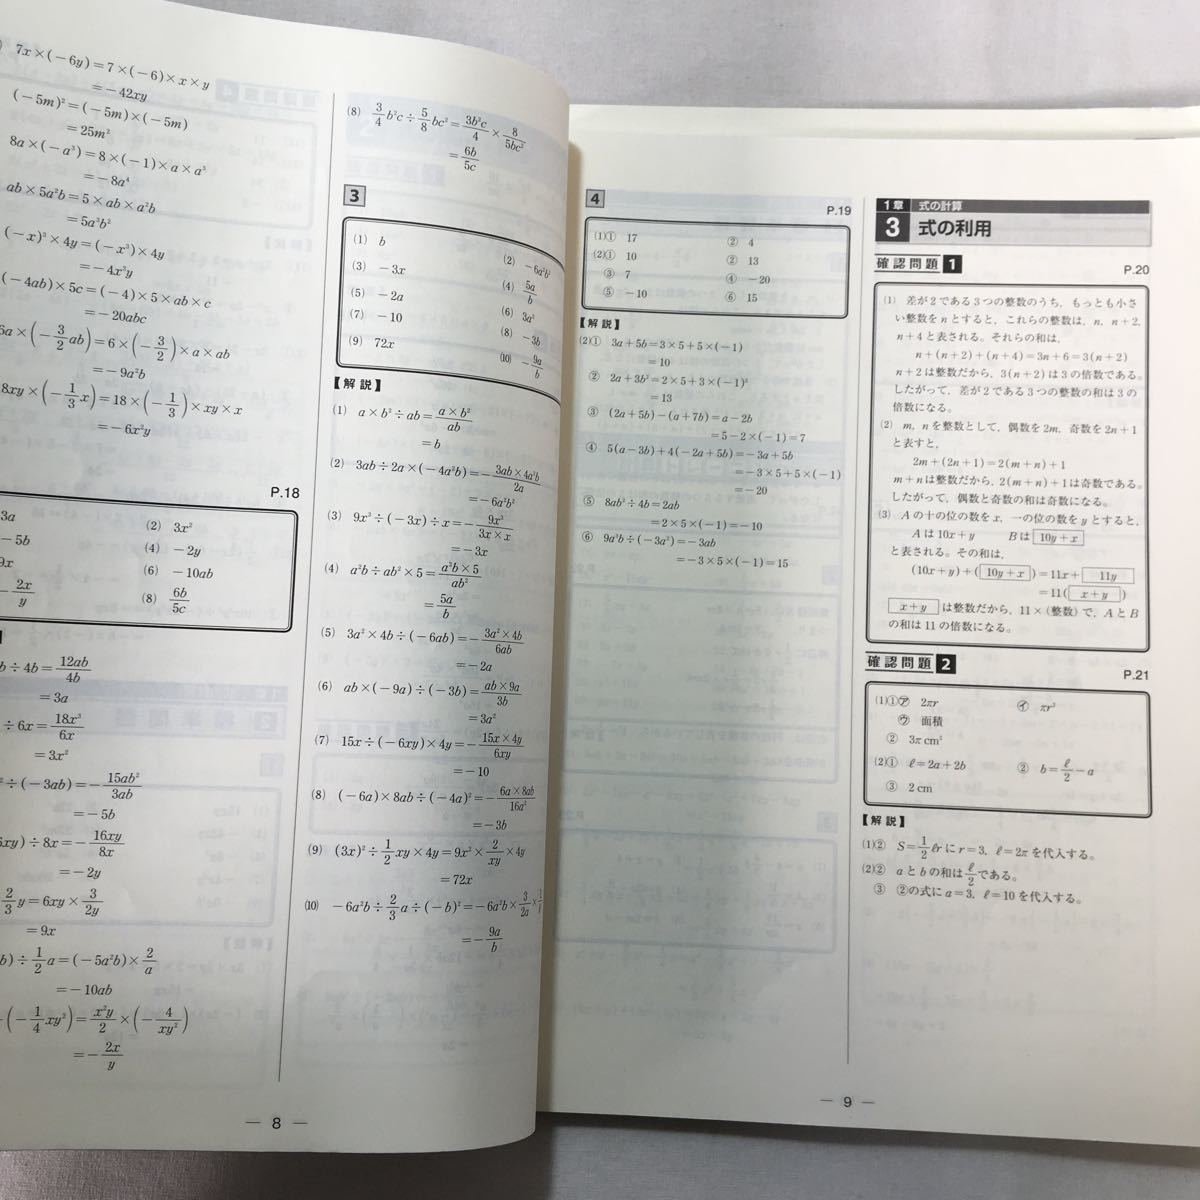 7x×(−6y)=7×(−6)×x×y
=−42xy
(−5m)²=(−5m)×(−5m)
=25m²
8a×(−a³)=8×(−1)×a×a³
=−8a⁴
ab×5a²b=5×ab×a²b
=5a³b²
(−x)³×4y=(−x³)×4y
=−4x³y
(−4ab)×5c=(−4)×5×ab×c
=−20abc
6a×(−3/2 ab)=6×(−3/2)×a×ab
=−9a²b
18xy×(−1/3 x)=18×(−1/3)×xy×x
=−6x²y
P.18
3a
(2) 3x²
−5b
(4) −2y
9x
(6) −10ab
−2x/y
(8) 6b/5c
b÷4b=12ab/4b
=3a
÷6x=18x³/6x
=3x²
²÷(−3ab)=−15ab²/3ab
=−5b
6xy)÷8x=−16xy/8x
=−2y
2/3 y=6xy×3/2y
=9x
b)÷1/2 a=(−5a²b)×2/a
=−10ab
÷(−1/4 xy²)=x²y/2×(−4/xy²)
=−2x/y
(8) 3/4 b²c÷5/8 bc²=3b²c/4×8/5bc²
=6b/5c
3
(1) b
(2) −6a²b²
(3) −3x
(4) 5a/b
(5) −2a
(6) 3a²
(7) −10
(8) −3b
(9) 72x
(10) −9a/b
【解説】
(1) a×b²÷ab=a×b²/ab
=b
(2) 3ab÷2a×(−4a²b)=−3ab×4a²b/2a
=−6a²b²
(3) 9x³÷(−3x)÷x=−9x³/3x×x
=−3x
(4) a²b÷ab²×5=a²b×5/ab²
=5a/b
(5) 3a²×4b÷(−6ab)=−3a²×4b/6ab
=−2a
(6) ab×(−9a)÷(−3b)=ab×9a/3b
=3a²
(7) 15x÷(−6xy)×4y=−15x×4y/6xy
=−10
(8) (−6a)×8ab÷(−4a)²=−6a×8ab/16a²
=−3b
(9) (3x)²÷1/2 xy×4y=9x²×2/xy×4y
=72x
(10) −6a²b÷2/3 a÷(−b)²=−6a²b×3/2a×
=−9a/b
— 8 —
4
P.19
(1)① 17
② 4
(2)① 10
② 13
③ 7
④ −20
⑤ −10
⑥ 15
【解説】
(2)① 3a+5b=3×5+5×(−1)
=10
② 2a+3b²=2×5+3×(−1)²
=13
③ (2a+5b)−(a+7b)=a−2b
=5−2×(−1)=7
④ 5(a−3b)+4(−2a+5b)=−3a+5b
=−3×5+5×(−1)
=−20
⑤ 8ab²÷4b=2ab
=2×5×(−1)=−10
⑥ 9a³b÷(−3a²)=−3ab
=−3×5×(−1)=15
1章 式の計算
3 式の利用
確認問題 1
P.20
(1) 差が2である3つの整数のうち，もっとも小さ
い整数をnとすると，これらの整数は，n，n+2，
n+4と表される。それらの和は，
n+(n+2)+(n+4)=3n+6=3(n+2)
n+2は整数だから，3(n+2)は3の倍数である。
したがって，差が2である3つの整数の和は3の
倍数になる。
(2) m，nを整数として，偶数を2m，奇数を2n+1
と表すと，
2m+(2n+1)=2(m+n)+1
m+nは整数だから，2(m+n)+1は奇数である。
したがって，偶数と奇数の和は奇数になる。
(3) Aの十の位の数をx，一の位の数をyとすると，
Aは10x+y Bは 10y+x
と表される。その和は，
(10x+y)+( 10y+x )=11x+ 11y
=11( x+y )
x+y は整数だから，11×(整数)で，AとB
の和は11の倍数になる。
確認問題 2
P.21
(1)①㋐ 2πr
㋑ πr²
㋒ 面積
② 3π cm²
(2)① ℓ=2a+2b
② b=ℓ/2−a
③ 2 cm
【解説】
(1)② S=1/2 ℓrにr=3，ℓ=2πを代入する。
(2)② aとbの和はℓ/2である。
③ ②の式にa=3，ℓ=10を代入する。
— 9 —